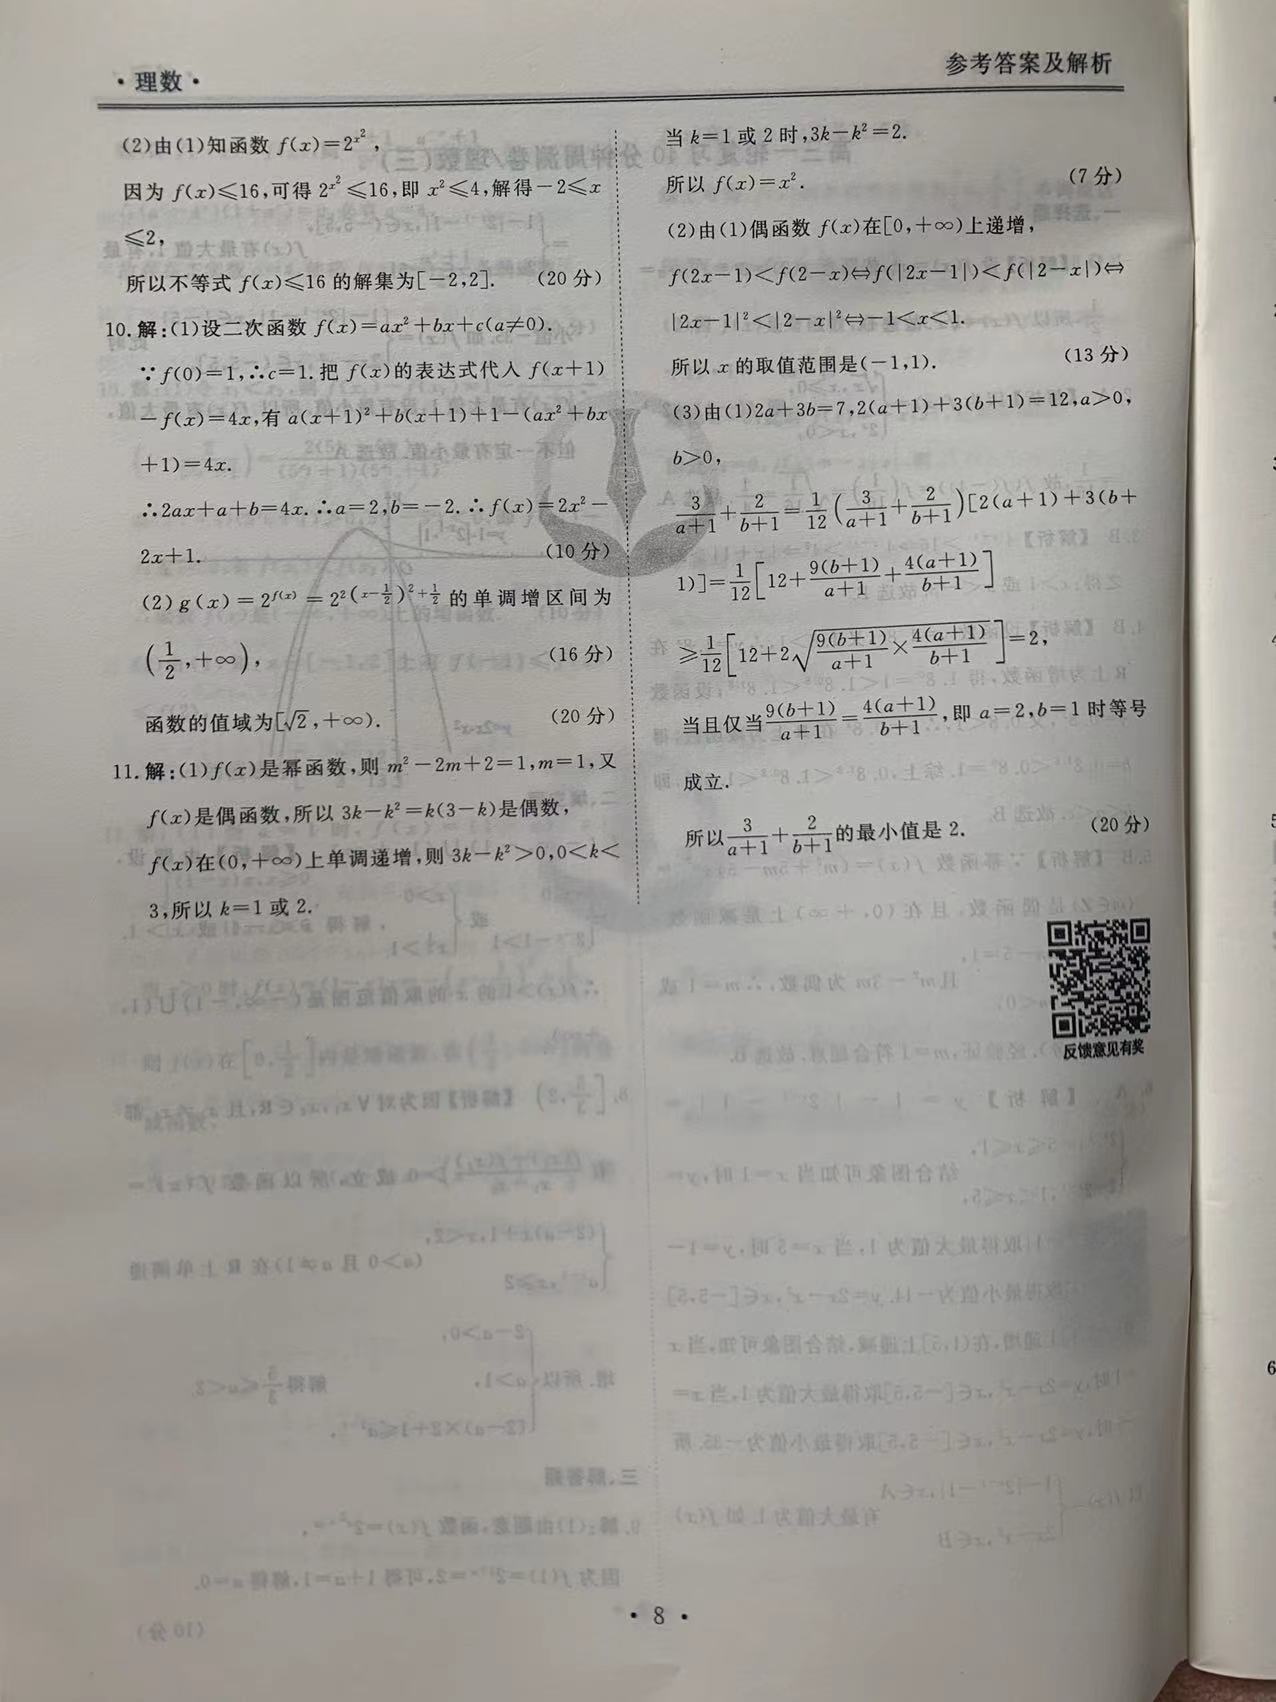 ·理数·
参考答案及解析
(2)由(1)知函数 f(x)=2^{x²},
因为 f(x)≤16,可得 2^{x²}≤16,即 x²≤4,解得-2≤x
≤2,
所以不等式 f(x)≤16 的解集为[-2,2]. (20 分)
10.解:(1)设二次函数 f(x)=ax²+bx+c(a≠0).
∵f(0)=1,∴c=1.把 f(x)的表达式代入 f(x+1)
-f(x)=4x,有 a(x+1)²+b(x+1)+1-(ax²+bx
+1)=4x.
∴2ax+a+b=4x.∴a=2,b=-2.∴f(x)=2x²-
2x+1. (10 分)
(2)g(x)=2^{f(x)}=2^{2(x-1/2)²+1/2}的单调增区间为
(1/2,+∞), (16 分)
函数的值域为[√2,+∞). (20 分)
11.解:(1)f(x)是幂函数,则 m²-2m+2=1,m=1,又
f(x)是偶函数,所以 3k-k²=k(3-k)是偶数,
f(x)在(0,+∞)上单调递增,则 3k-k²>0,0<k<
3,所以 k=1 或 2.
当 k=1 或 2 时,3k-k²=2.
所以 f(x)=x². (7 分)
(2)由(1)偶函数 f(x)在[0,+∞)上递增,
f(2x-1)<f(2-x)⇔f(|2x-1|)<f(|2-x|)⇔
|2x-1|²<|2-x|²⇔-1<x<1.
所以 x 的取值范围是(-1,1). (13 分)
(3)由(1)2a+3b=7,2(a+1)+3(b+1)=12,a>0,
b>0,
3/(a+1)+2/(b+1)=1/12(3/(a+1)+2/(b+1))[2(a+1)+3(b+
1)]=1/12[12+9(b+1)/(a+1)+4(a+1)/(b+1)]
≥1/12[12+2√(9(b+1)/(a+1)×4(a+1)/(b+1))]=2,
当且仅当9(b+1)/(a+1)=4(a+1)/(b+1),即 a=2,b=1 时等号
成立.
所以3/(a+1)+2/(b+1)的最小值是 2. (20 分)
反馈意见有奖
·8·